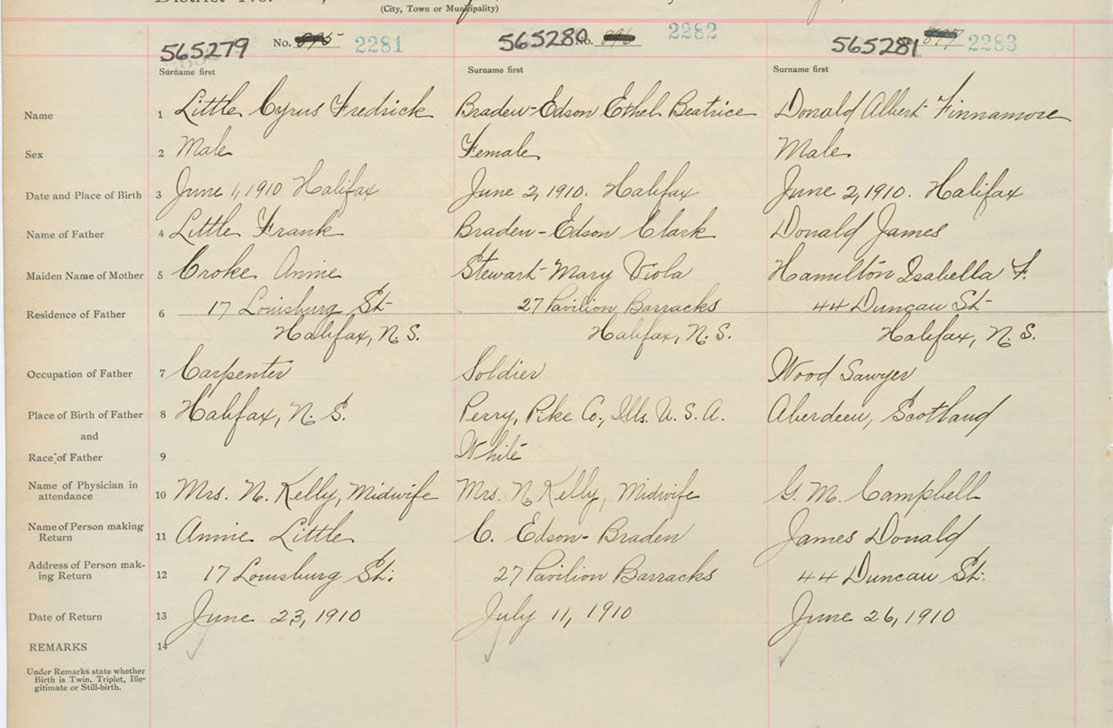 (City, Town or Municipality)
565279 No. 2281 565280 No. 2282 565281 2283
Surname first Surname first Surname first
Name 1 Little Cyrus Fredrick Braden-Edson Ethel Beatrice Donald Albert Finnamore
Sex 2 Male Female Male
Date and Place of Birth 3 June 1, 1910 Halifax June 2, 1910. Halifax June 2, 1910. Halifax
Name of Father 4 Little Frank Braden-Edson Clark Donald James
Maiden Name of Mother 5 Croke Annie Stewart-Mary Viola Hamilton Isabella F.
Residence of Father 6 17 Louisburg St 27 Pavilion Barracks 44 Duncan St
Halifax, N.S. Halifax, N.S. Halifax, N.S.
Occupation of Father 7 Carpenter Soldier Wood Sawyer
Place of Birth of Father 8 Halifax, N.S. Perry, Pike Co., Ills. U.S.A. Aberdeen, Scotland
and
Race of Father 9 White
Name of Physician in attendance 10 Mrs. N. Kelly, Midwife Mrs. N Kelly, Midwife G. M. Campbell
Name of Person making Return 11 Annie Little C. Edson-Braden James Donald
Address of Person making Return 12 17 Louisburg St. 27 Pavilion Barracks 44 Duncan St.
Date of Return 13 June 23, 1910 July 11, 1910 June 26, 1910
REMARKS 14
Under Remarks state whether
Birth is Twin, Triplet, Ille-
gitimate or Still-birth.